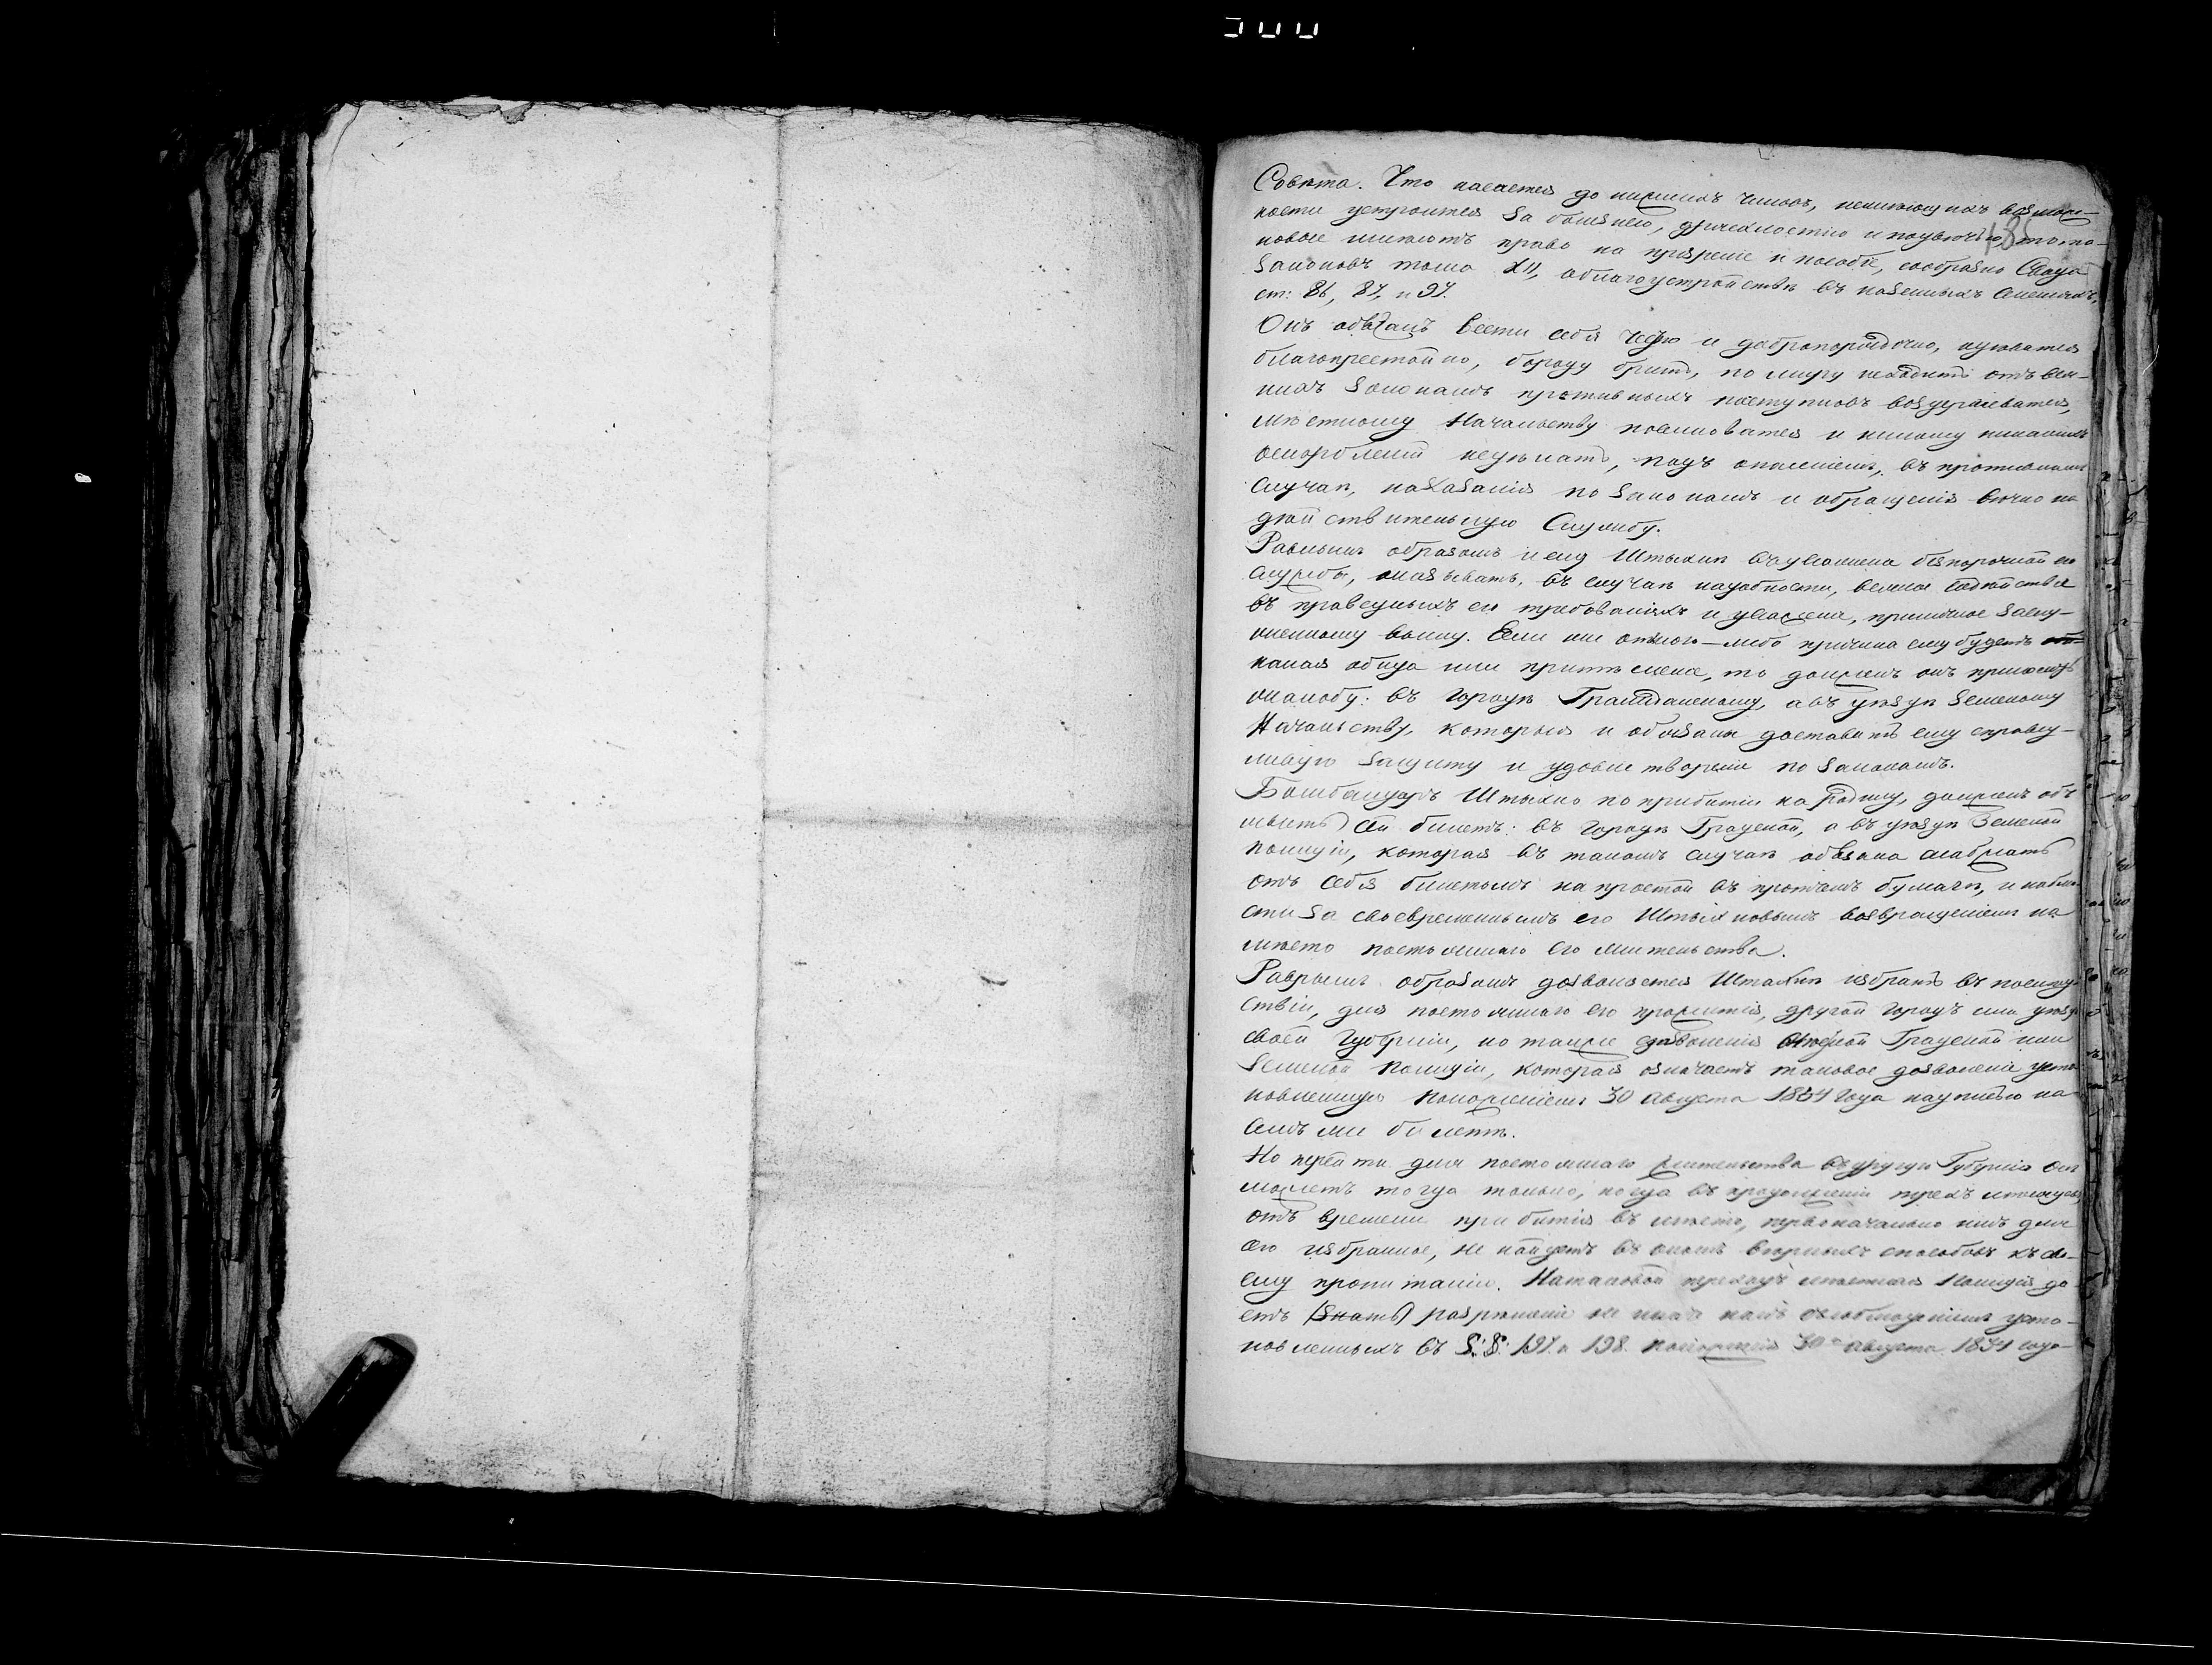 Совѣта. Что касается до нижнихъ чиновъ, неимѣющихъ возмож-
ности устроится за болезнею, дряхлостію и
новые имѣютъ право на призреніе и пособіе, сообразно Свода
Законовъ тома XII, о благоустройствѣ въ казенныхъ селеніяхъ,
ст: 86, 87, и 97.
Онъ обязанъ вести себя честно и добропорядочно, одѣватся
благопристойно, бороду брить, по миру неходить отъ вся-
кихъ законамъ противныхъ поступковъ воздерживатся,
мѣстному Начальству повиноватся и никому никакихъ
оскорбленій недѣлать, подъ опасеніемъ, въ противномъ
случаѣ, наказанія по законамъ и обращенія вѣчно на
дѣйствительную Службу.
Равнымъ образомъ и ему Штыхину въ уваженіи безпорочной его
службы, оказывать, въ случаѣ надобности, всякое содѣйствіе
въ праведныхъ его требованіяхъ и уваженіе, приличное заслу-
женному воину. Если же отъ кого-либо причинена ему будетъ
какая обида или притѣсненіе, то долженъ онъ приносить
жалобу: въ городѣ Гражданскому, а въ уѣздѣ Земскому
Начальству, которыя и обязаны доставить ему справед-
ливую защиту и удовлетвореніе по законамъ.
Бомбандиръ Штыхинъ по прибытіи на родину, долженъ объ
явить сей билетъ: въ городѣ Градской, а въ уѣздѣ Земской
полиціи, которая въ такомъ случаѣ обязана снабжать
отъ себя билетомъ на простой въ протчемъ бумагѣ, и наблю-
сти за своевременнымъ его Штыхиновымъ возвращеніемъ на
мѣсто постояннаго его жительства.
Равнымъ образомъ дозволяется Штыхину избрать въ послѣд-
ствіи, для постояннаго его прожитія, другой городъ или уѣздъ
своей Губерніи, но также съ дозволенія мѣстной Градской или
Земской полиціи, которая означаетъ таковое дозволеніе уста-
новленную Положеніемъ 30 августа 1834 года надписью на
семъ же билетѣ.
Но перейти для постояннаго жительства въ другую Губернію онъ
можетъ тогда только, когда въ продолженіи трехъ мѣсяцевъ
отъ времени прибытія въ мѣсто, первоначально имъ для
сего избранное, не найдетъ въ ономъ вѣрныхъ способовъ къ сво-
ему пропитанію. На таковой переходъ мѣстная Полиція да-
етъ (знать) разрѣшеніе не иначе какъ съ соблюденіемъ уста-
новленныхъ въ §:§: 197. и 198. положенія 30го августа 1834 года